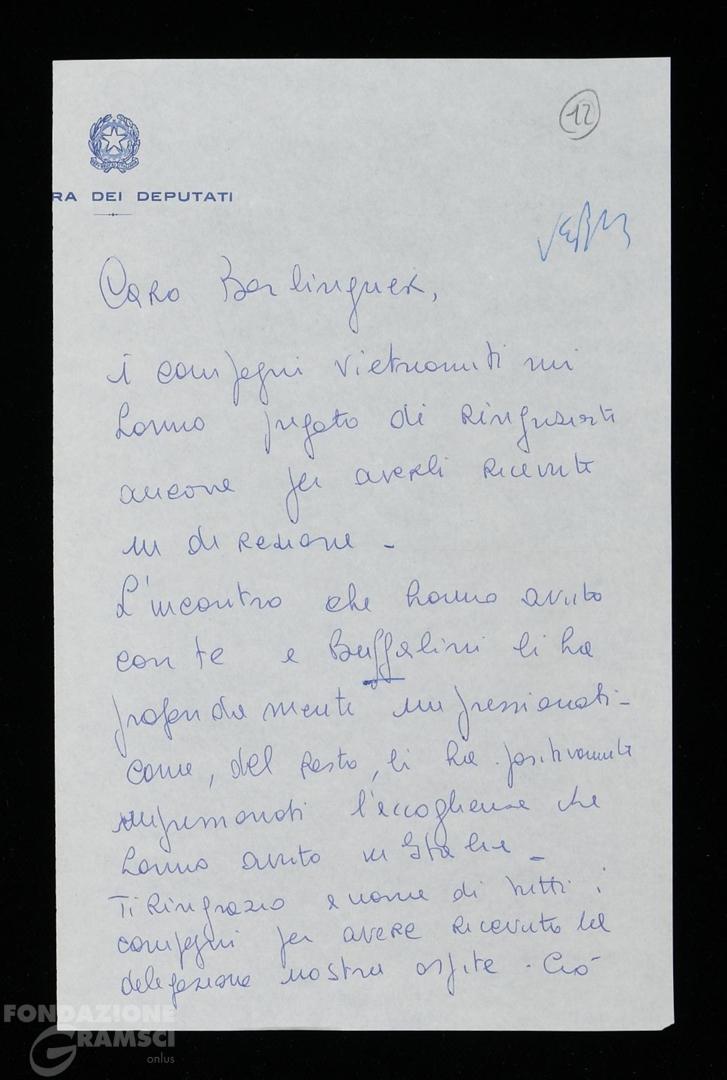 12
RA DEI DEPUTATI
Caro Berlinguer,
i compagni vietnamiti mi
hanno pregato di ringraziarti
ancora per averli ricevuti
in direzione -
L'incontro che hanno avuto
con te e Buffalini li ha
profondamente impressionati -
come, del resto, li ha positivamente
impressionati l'accoglienza che
hanno avuto in Italia -
Ti ringrazio a nome di tutti i
compagni per avere ricevuto la
delegazione nostra ospite. Ciò
FONDAZIONE
GRAMSCI
onlus